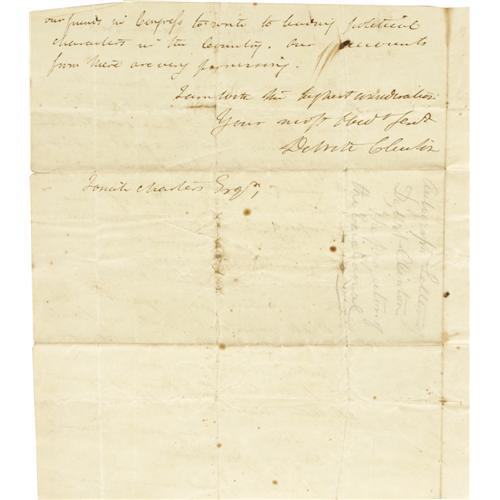 our friends in Congress to write to leading political
characters in the Country. Our accounts
from there are very promising.
I am with the highest consideration
Your most Obedt Servt
DeWitt Clinton
Esqr,
Autograph Letter
Dewitt Clinton